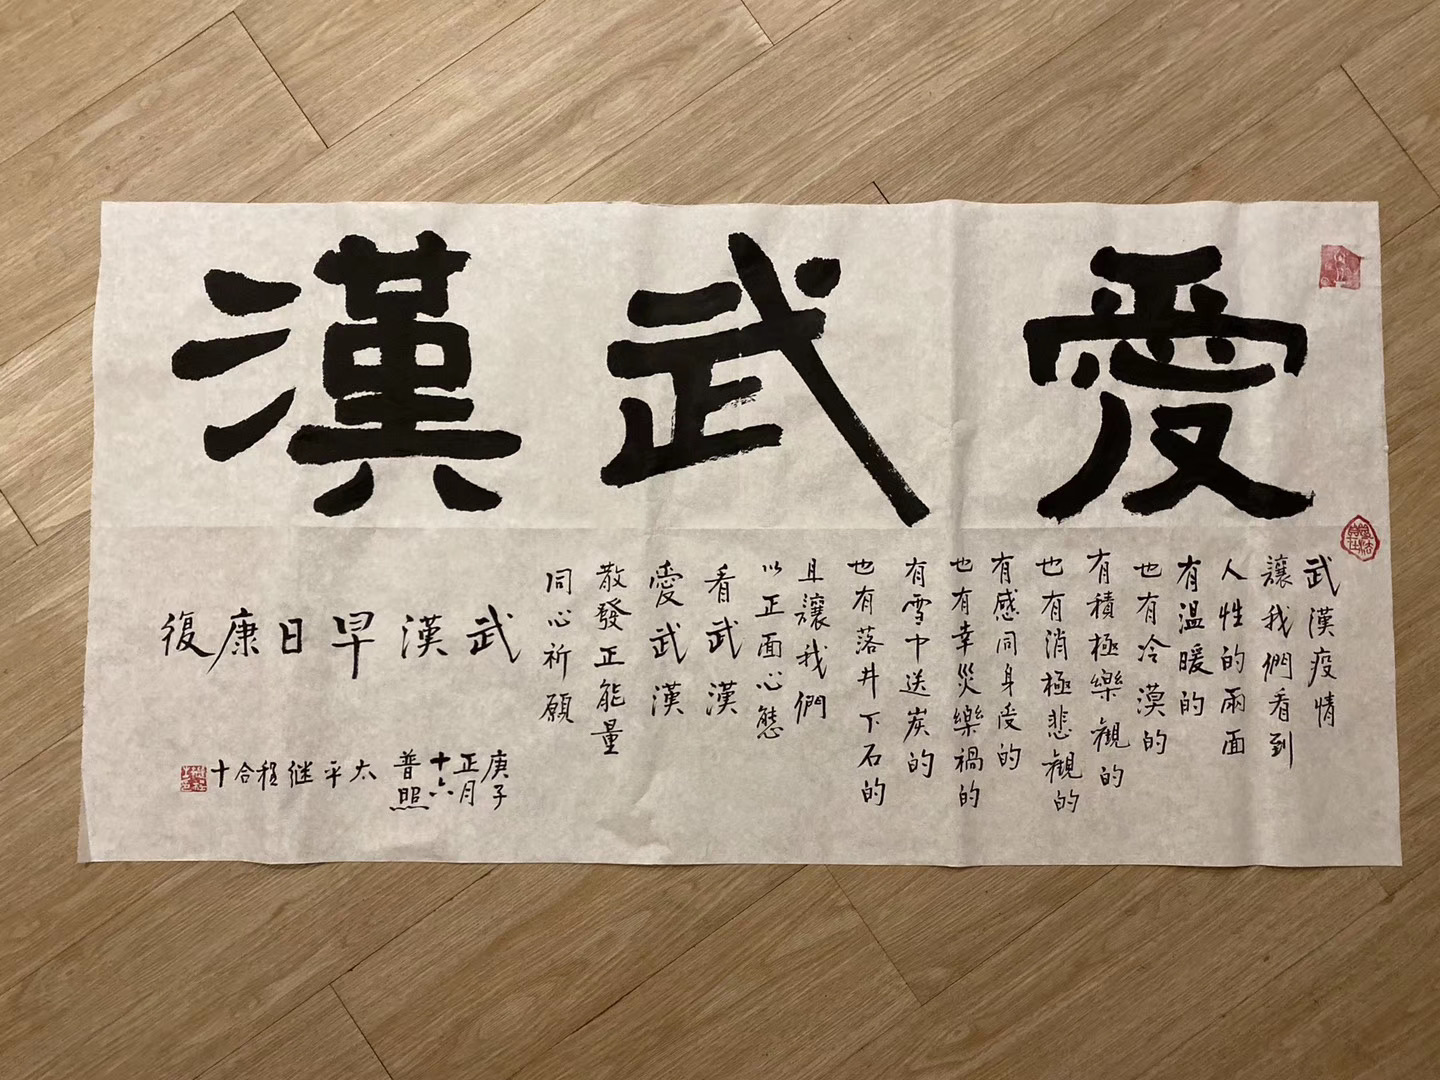 愛武漢
武漢疫情
讓我們看到
人性的兩面
有温暖的
也有冷漠的
有積極樂觀的
也有消極悲觀的
有感同身受的
也有幸災樂禍的
有雪中送炭的
也有落井下石的
且讓我們
以正面心態
看武漢
愛武漢
散發正能量
同心祈願
武漢早日康復
庚子
正月
十六
普照
太平继程合十